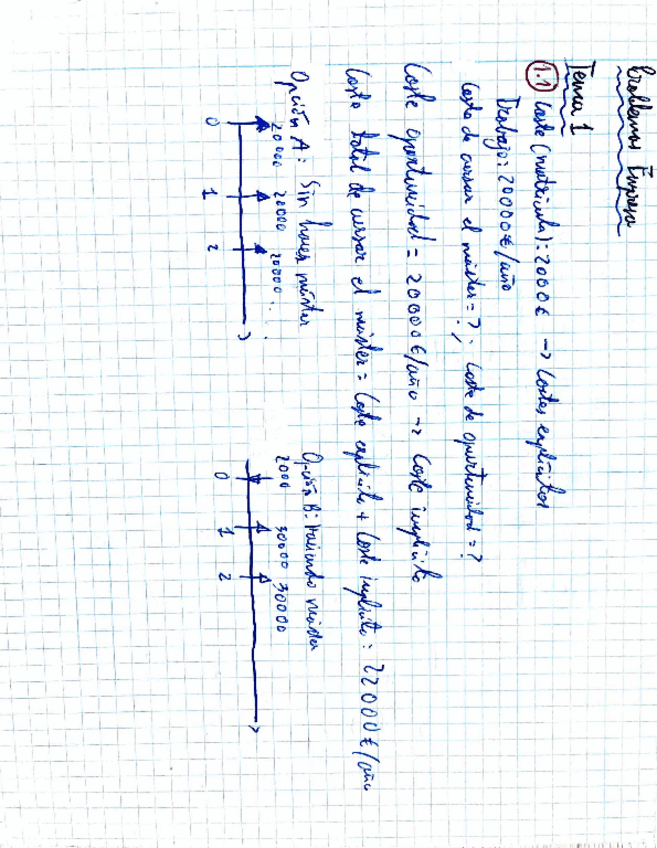 Problemas Empresa
Tema 1
1.1 Coste (matrícula): 2000€ → Costes explícitos
Trabajo: 20000€/año
Coste de cursar el máster = ?; Coste de oportunidad = ?
Coste oportunidad = 20000€/año → Coste implícito
Coste total de cursar el máster = Coste explícito + Coste implícito = 22000€/año
Opción A: Sin hacer máster
20000 20000 20000...
0 1 2
Opción B: Haciendo máster
2000 30000 30000
0 1 2